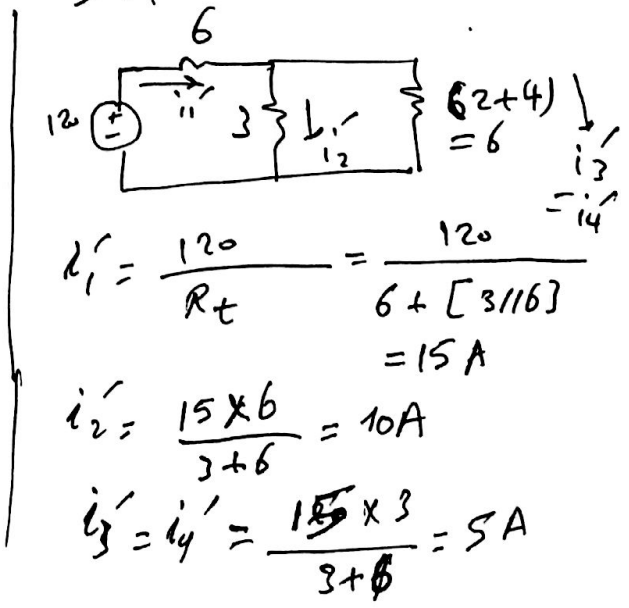 6
120
+
-
i1′
3
i2′
(2+4)
= 6
i3′
= i4′
i1′ = 120 / Rt = 120 / 6 + [3//6]
= 15 A
i2′ = 15 × 6 / 3 + 6 = 10A
i3′ = i4′ = 15 × 3 / 3 + 6 = 5 A